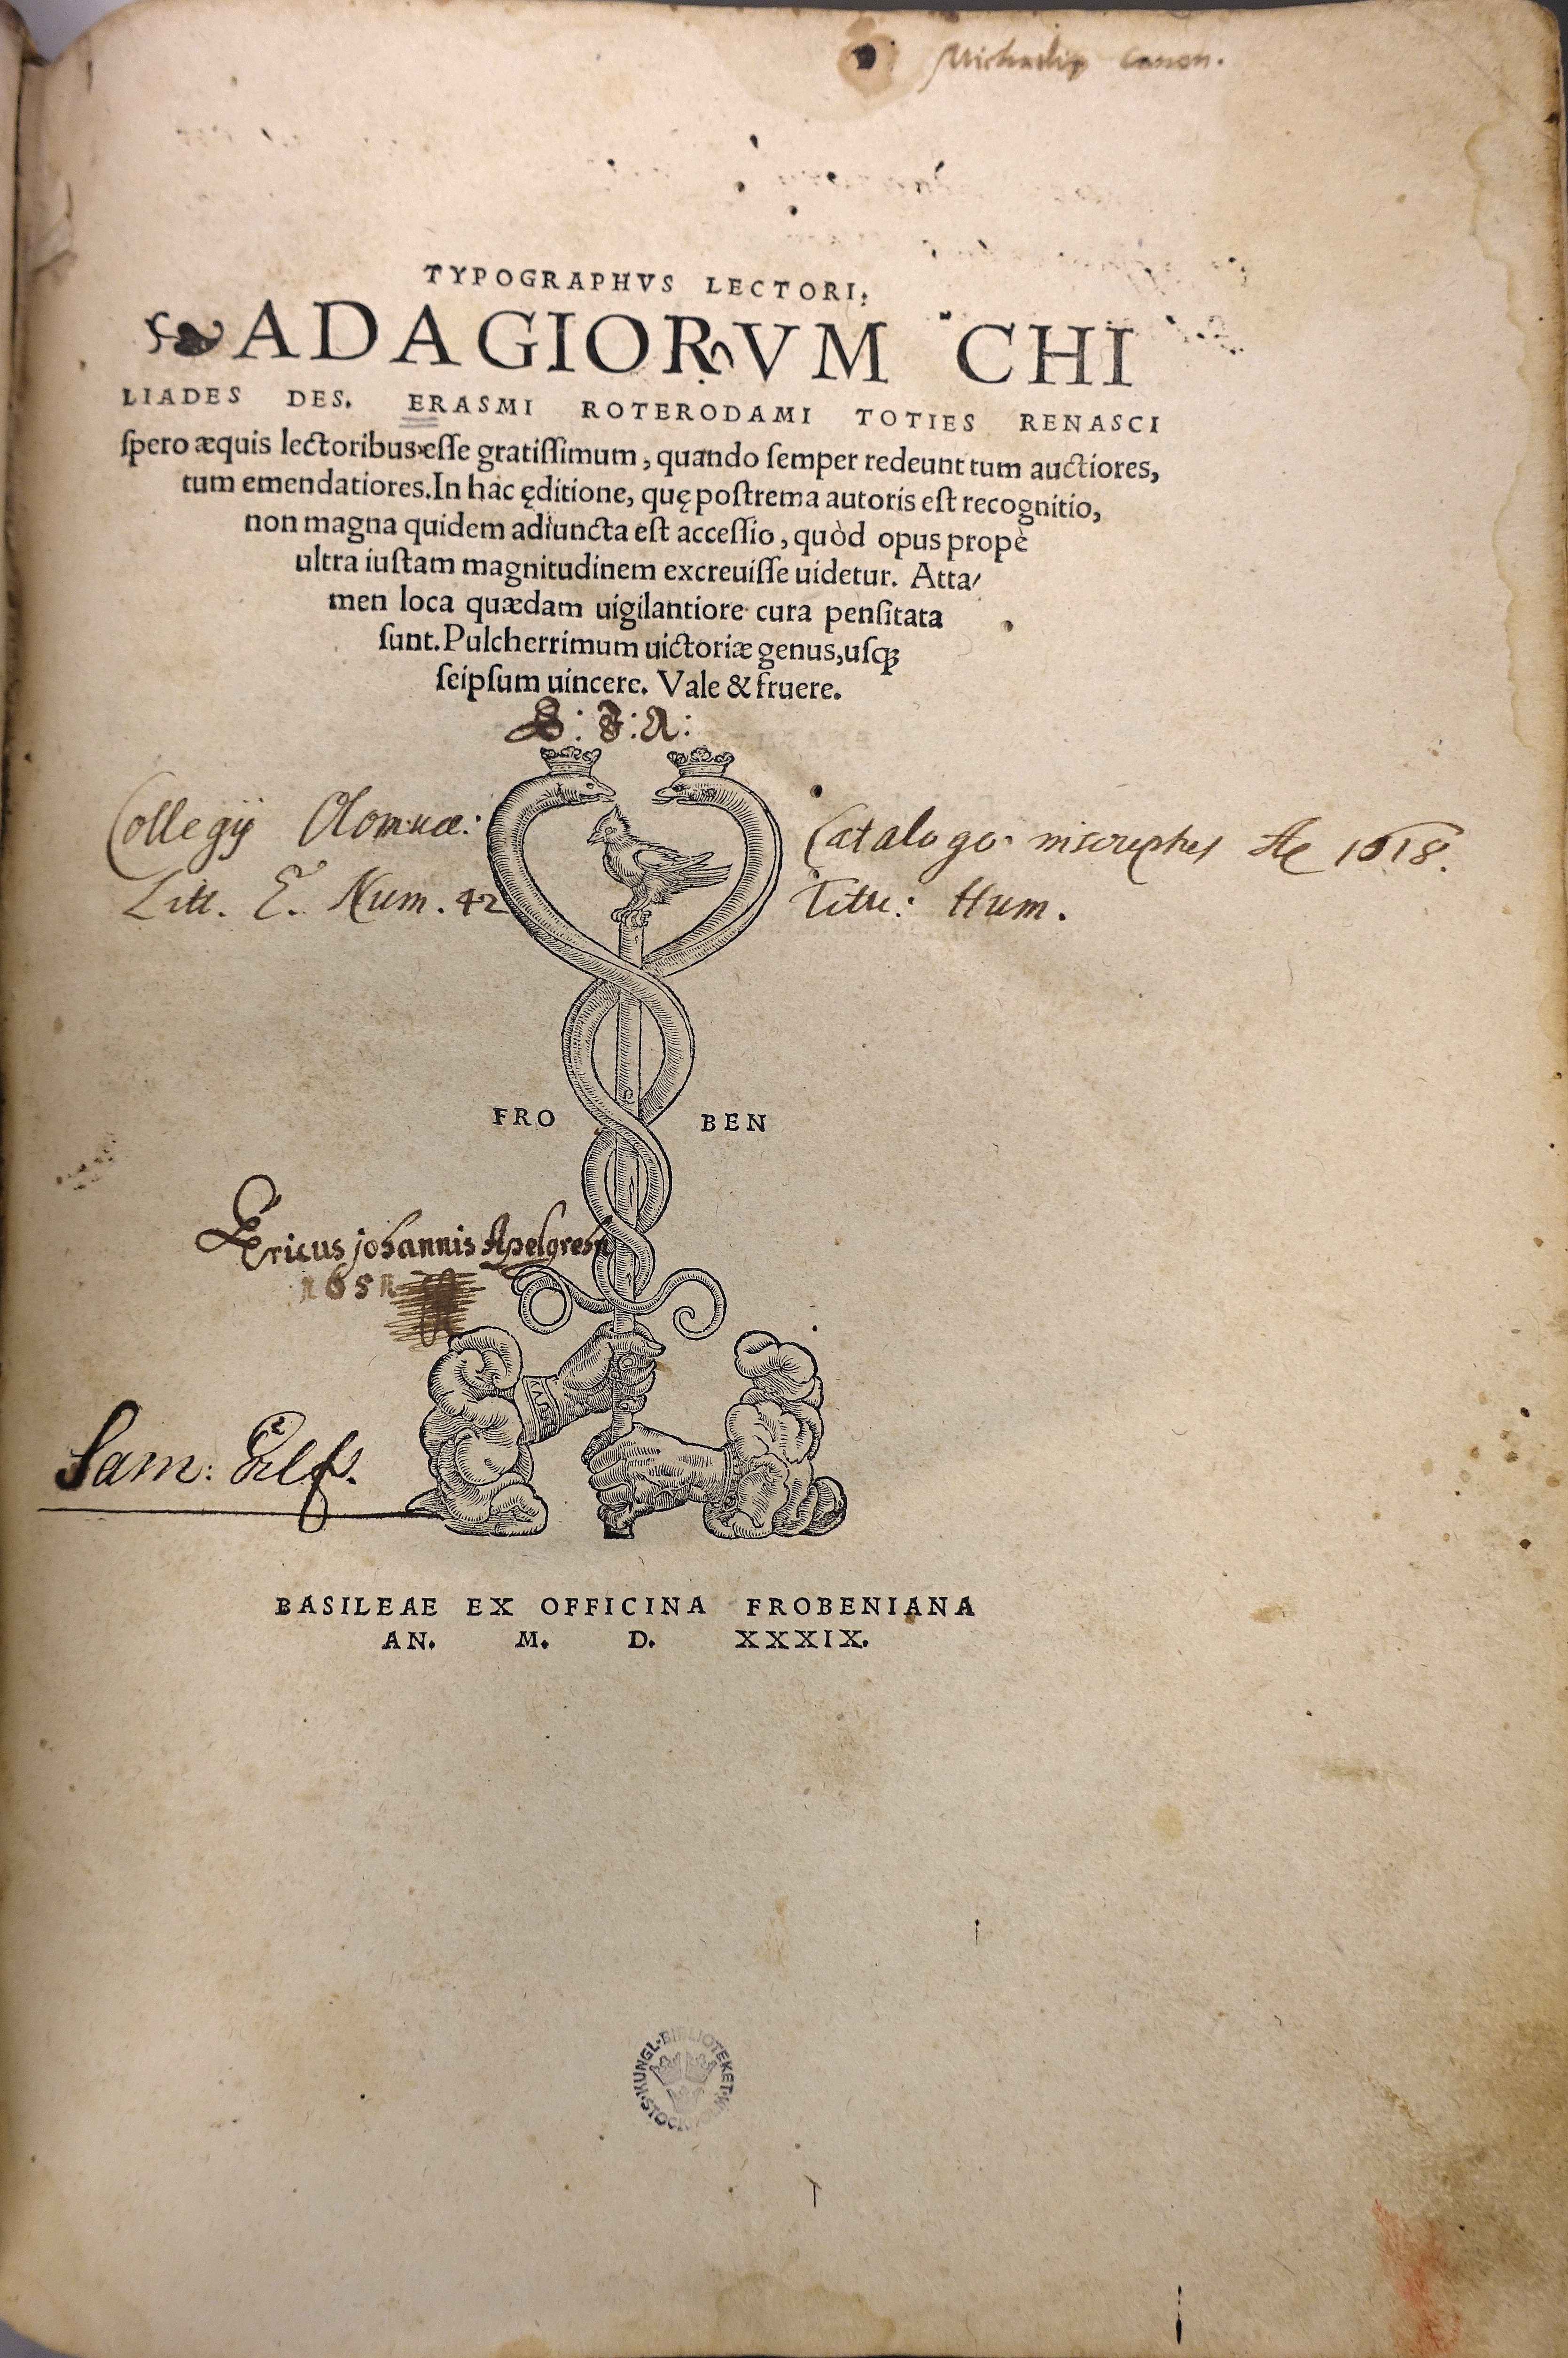 Michaelis Canon.
TYPOGRAPHVS LECTORI:
ADAGIORVM CHI
LIADES DES. ERASMI ROTERODAMI TOTIES RENASCI
ſpero æquis lectoribus eſſe gratiſſimum, quando ſemper redeunt tum auctiores,
tum emendatiores. In hac ęditione, quę poſtrema autoris eſt recognitio,
non magna quidem adiuncta eſt acceſſio, quòd opus propè
ultra iuſtam magnitudinem excreuiſſe uidetur. Atta/
men loca quædam uigilantiore cura penſitata
ſunt. Pulcherrimum uictoriæ genus, uſq;
ſeipſum uincere. Vale & fruere.
Collegij Olomucē: Catalogo inscriptus Ao 1618.
Litt. E. Num. 42 Titu: Hum.
FRO BEN
Ericus johannis Apelgrehn
165
Sam:
BASILEAE EX OFFICINA FROBENIANA
AN. M. D. XXXIX.
KUNGL. BIBLIOTEKET